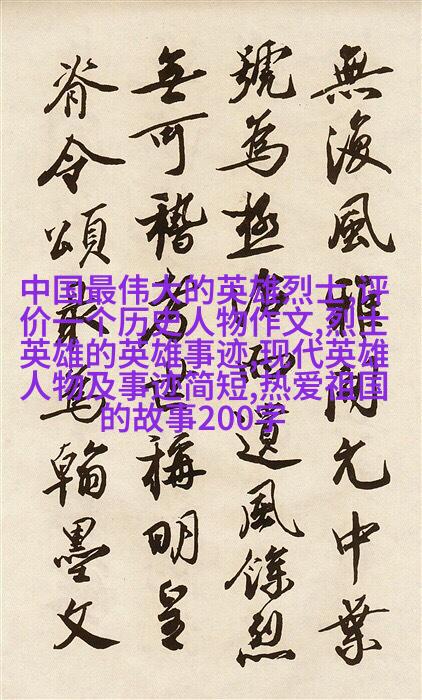 無復風雅開元中葉
號為極盛而遺風餘烈
無可稽考世稱明皇
脊令頌最為翰墨文
中国最伟大的英雄烈士,评
价一个历史人物作文,烈士
英雄的英雄事迹,现代英雄
人物及事迹简短,热爱祖国
的故事200字